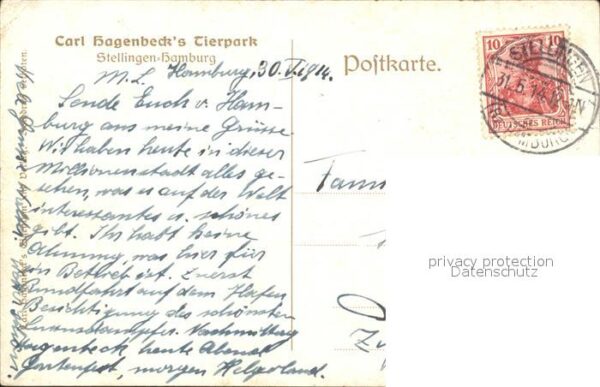 Carl Hagenbeck's Tierpark
Stellingen-Hamburg
Postkarte.
M. L. Hamburg, 30. V. 1914.
Sende Euch v. Ham-
burg aus meine Grüsse
Wir haben heute in dieser
Millionenstadt alles ge-
sehen, was es auf der Welt
interessantes u. schönes
gibt. Ihr habt keine
Ahnung, was hier für
ein Betrieb ist. Zuerst
Rundfahrt auf dem Hafen
Besichtigung des schönsten
Luxusdampfer. Nachmittag
Hagenbeck, heute Abend
Gartenfest, morgen Helgoland.
10 10
DEUTSCHES REICH
STELLINGEN
31.5.14
MBURG
Fam
privacy protection
Datenschutz